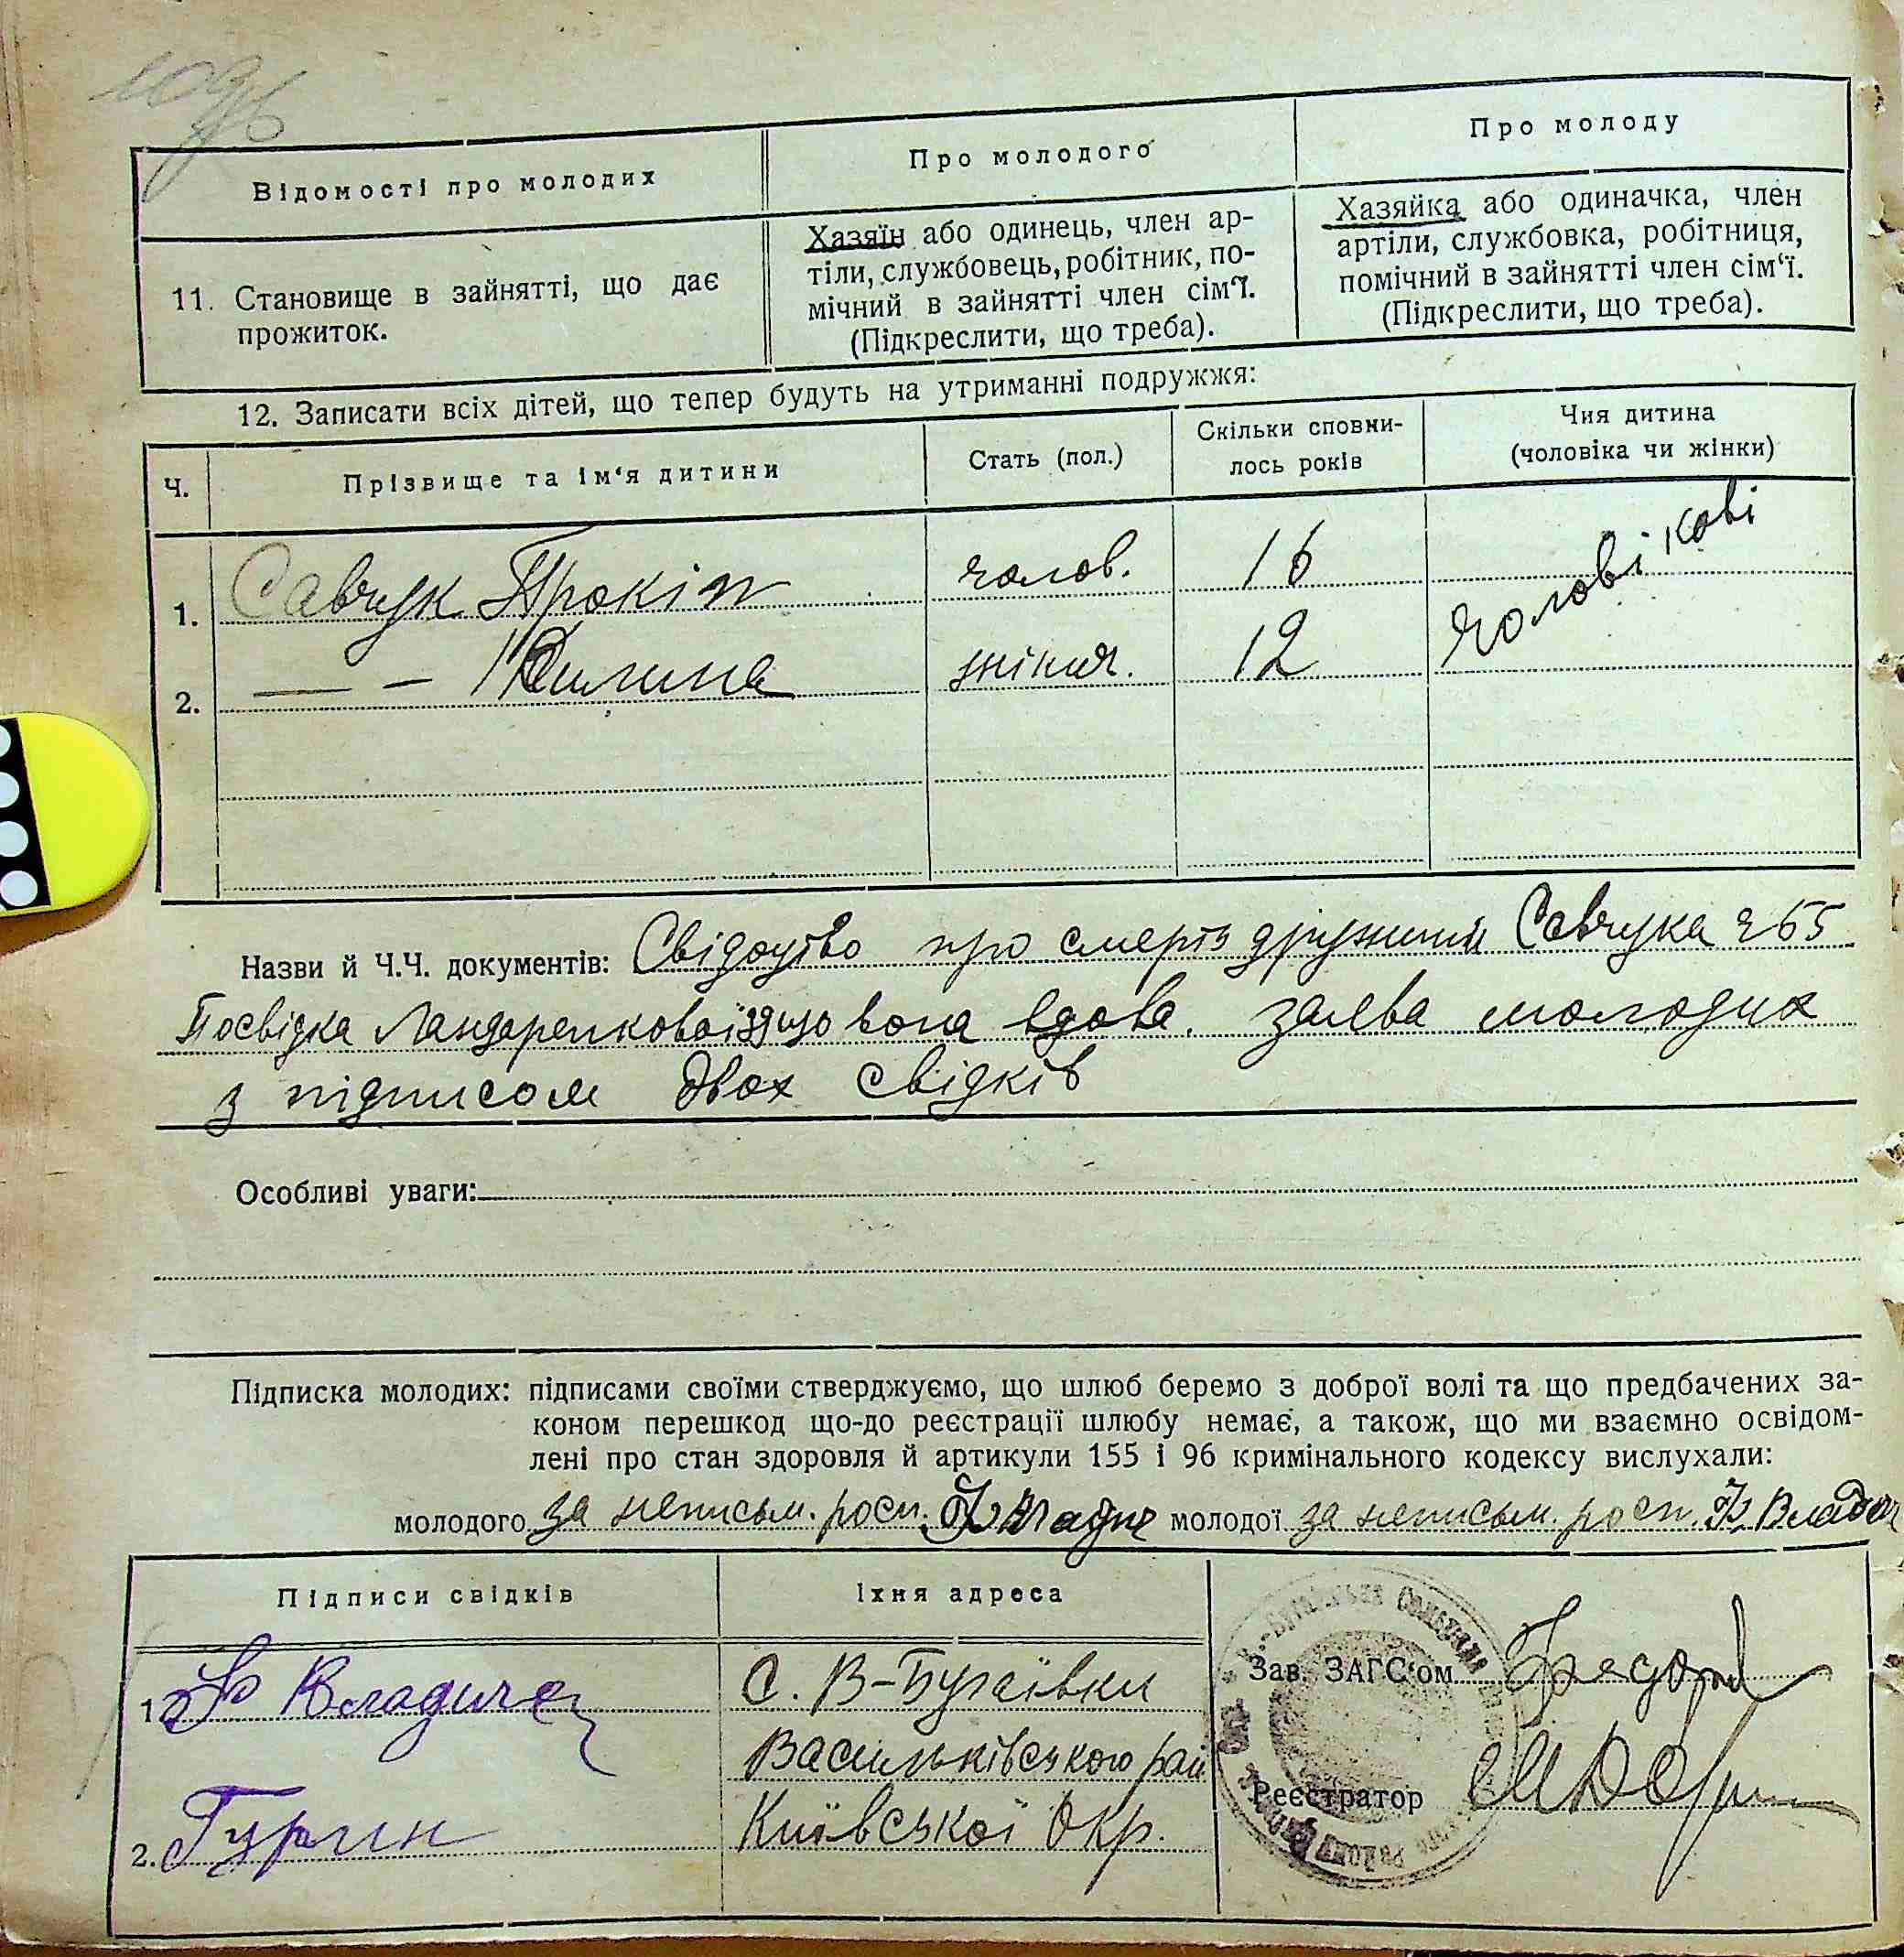 Відомості про молодих
Про молодого
Про молоду
11. Становище в зайнятті, що дає
прожиток.
Хазяїн або одинець, член ар-
тіли, службовець, робітник, по-
мічний в зайнятті член сім'ї.
(Підкреслити, що треба).
Хазяйка або одиначка, член
артіли, службовка, робітниця,
помічний в зайнятті член сім'ї.
(Підкреслити, що треба).
12. Записати всіх дітей, що тепер будуть на утриманні подружжя:
Ч.
Прізвище та ім'я дитини
Стать (пол.)
Скільки сповни-
лось років
Чия дитина
(чоловіка чи жінки)
1. Савчук Прокіп чолов. 16 чоловікові
2. — – Килина жіноч. 12
Назви й Ч.Ч. документів: Свідоцтво про смерть дружини Савчука
Посвідка що вона вдова. заява молодих
з підписом двох свідків
Особливі уваги:
Підписка молодих: підписами своїми стверджуємо, що шлюб беремо з доброї волі та що предбачених за-
коном перешкод що-до реєстрації шлюбу немає, а також, що ми взаємно освідом-
лені про стан здоровля й артикули 155 і 96 кримінального кодексу вислухали:
молодого за неписьм. росп. молодої за неписьм. росп.
Підписи свідків
Їхня адреса
1.
с. В-Бугаївки
Васильківського рай
2.
Київської Окр.
Зав. ЗАГС'ом
Реєстратор